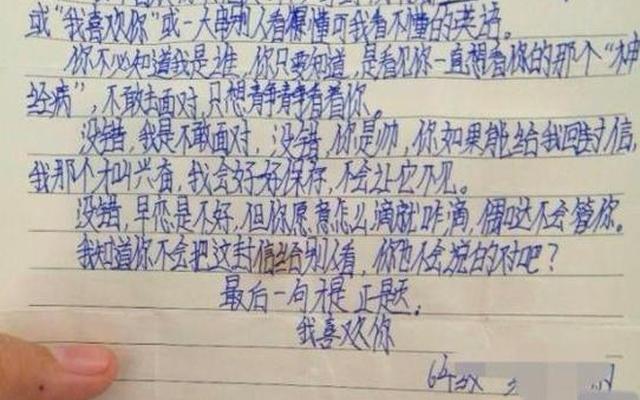 或“我喜欢你”或一大串别人看得懂可我看不懂的英语。
你不必知道我是谁，你只要知道，是看见你一直想看你的那个“神
经病”，不敢去面对，只想静静看着你。
没错，我是不敢面对，没错，你是帅，你如果能给我回封信，
我那个叫兴奋，我会好好保存，不会让它不见。
没错，早恋是不好，但你愿意怎么滴就咋滴，偶哒不会管你。
我知道你不会把这封信给别人看，你也不会说的对吧？
最后一句才是正题，
我喜欢你